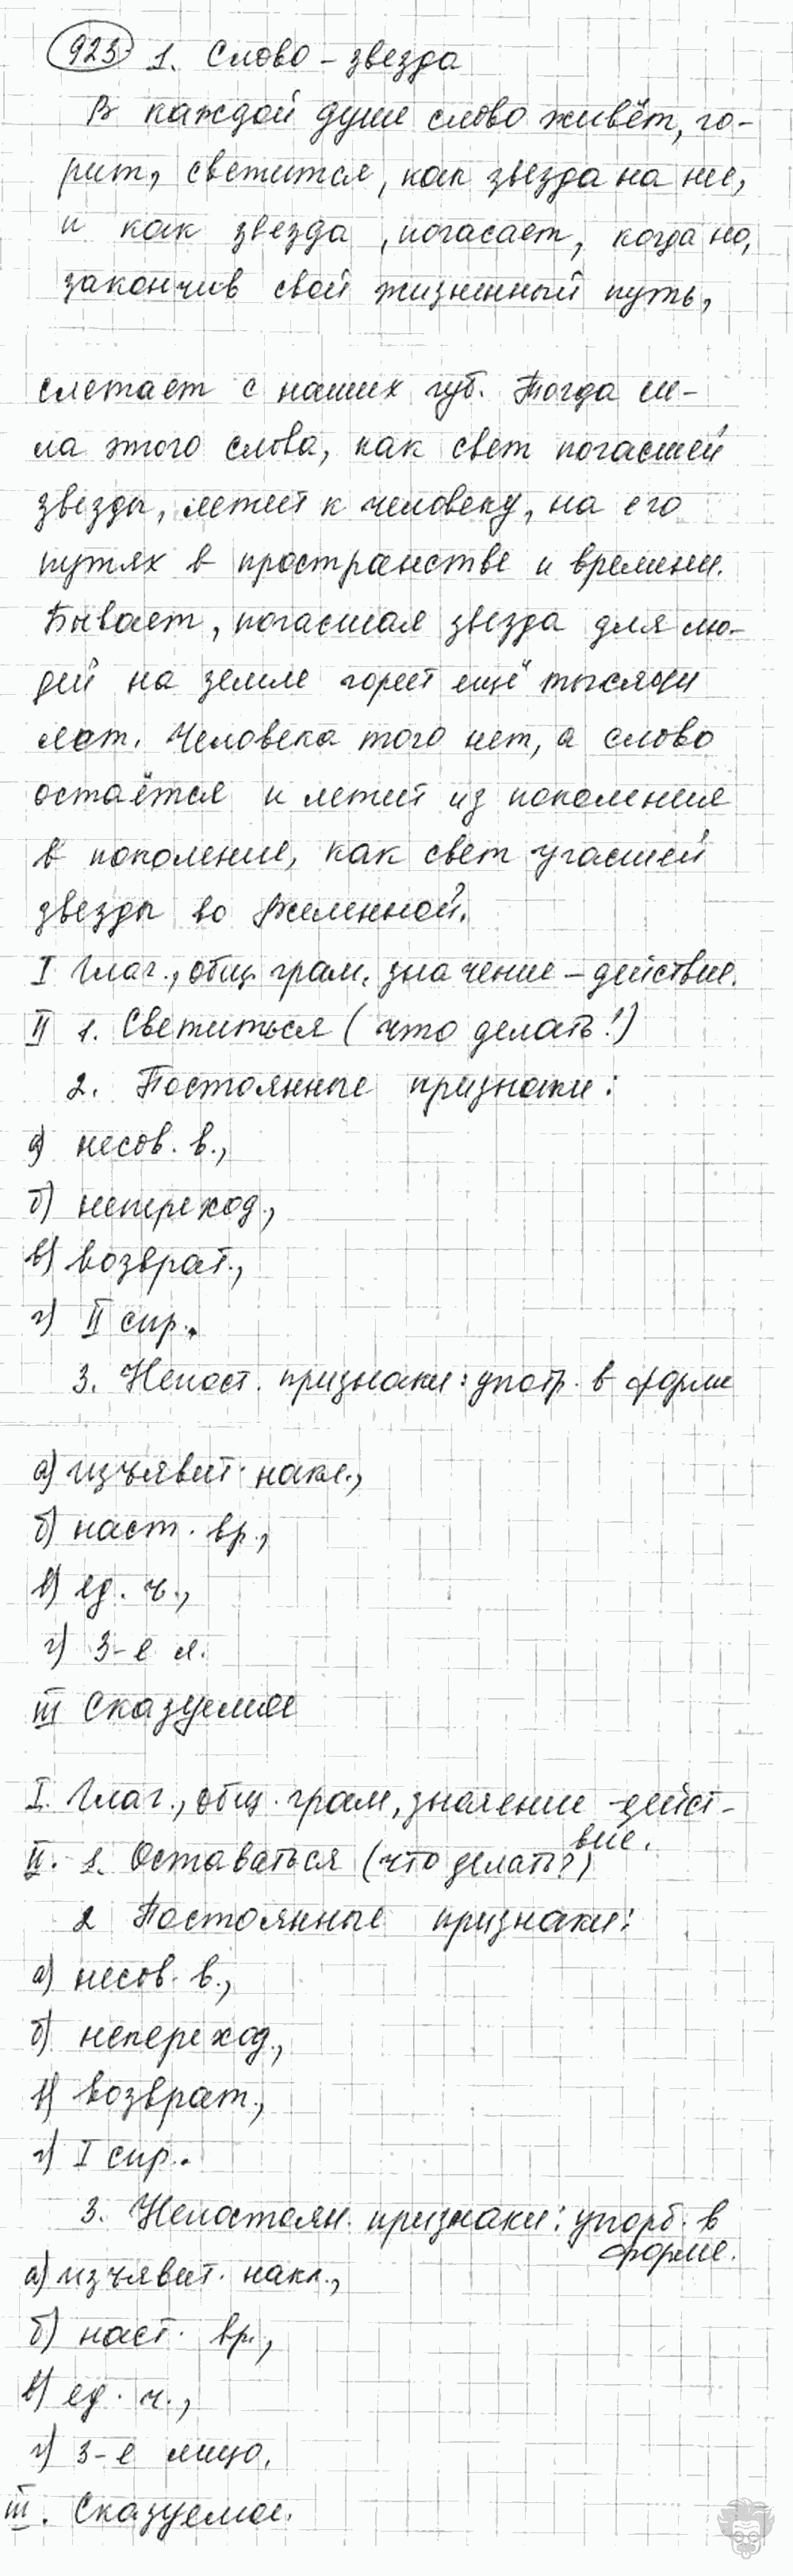 923 1. Слово - звезда
В каждой душе слово живёт, го-
рит, светится, как звезда на не,
и как звезда, погасает, когда но,
закончив свой жизненный путь,
слетает с наших губ. Тогда си-
ла этого слова, как свет погасшей
звезды, летит к человеку, на его
путях в пространстве и времени.
Бывает, погасшая звезда для лю-
дей на земле горит ещё тысячи
лет. Человека того нет, а слово
остаётся и летит из поколения
в поколение, как свет угасшей
звезды во Вселенной.
I Глаг., общ. грам. значение - действие.
II 1. Светиться (что делать?)
2. Постоянные признаки:
а) несов. в.,
б) непереход.,
в) возврат.,
г) II спр..
3. Непост. признаки: употр. в форме
а) изъявит. накл.,
б) наст. вр.,
в) ед. ч.,
г) 3-е л.
III Сказуемое
I. Глаг., общ. грам. значение - дейст-
вие.
II. 1. Оставаться (что делать?)
2 Постоянные признаки:
а) несов. в.,
б) непереход.,
в) возврат.,
г) I спр..
3. Непостоян. признаки: упорб. в
форме.
а) изъявит. накл.,
б) наст. вр.,
в) ед. ч.,
г) 3-е лицо.
III. Сказуемое.